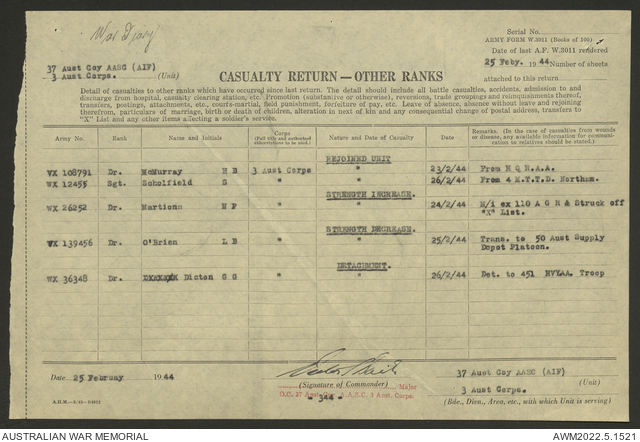 War Diary
Serial No.
ARMY FORM W.3011 (Books of 100)
Date of last A.F. W.3011 rendered
25 Feby. 1944 Number of sheets
attached to this return
37 Aust Coy AASC (AIF)
3 Aust Corps. (Unit)
CASUALTY RETURN—OTHER RANKS
Detail of casualties to other ranks which have occurred since last return. The detail should include all battle casualties, accidents, admission to and
discharge from hospital, casualty clearing station, etc. Promotion (substantive or otherwise), reversions, trade groupings and reinusterings thereof,
transfers, postings, attachments, etc., courts-martial, field punishment, forfeiture of pay, etc. Leave of absence, absence without leave and rejoining
therefrom, particulars of marriage, birth or death of children, alteration in next of kin and any consequential change of postal address, transfers to
"X" List and any other items affecting a soldier's service.
Army No. Rank Name and Initials Corps (Full title and authorized abbreviations to be used.) Nature and Date of Casualty Date Remarks. (In the case of casualties from wounds or disease, any available information for communication to relatives should be stated.)
REJOINED UNIT
VX 108791 Dr. McMurray H B 3 Aust Corps " 23/2/44 From H Q R.A.A.
WX 12455 Sgt. Scholfield S " " 26/2/44 From 4 M.T.T.D. Northam.
STRENGTH INCREASE.
WX 26252 Dr. Martionn H P " " 24/2/44 M/i ex 110 A G H & Struck off
"X" List.
STRENGTH DECREASE.
VX 139456 Dr. O'Brien L B " " 25/2/44 Trans. to 50 Aust Supply
Depot Platoon.
DETACHMENT.
WX 36348 Dr. Dicton G G " " 26/2/44 Det. to 451 HVYAA. Troop
Date 25 February 1944
(Signature of Commander) Major
O.C. 37 Aust. Coy. A.A.S.C. 3 Aust. Corps.
- 344 -
37 Aust Coy AASC (AIF)
(Unit)
3 Aust Corps.
(Bde., Divn., Area, etc., with which Unit is serving)
AUSTRALIAN WAR MEMORIAL
AWM2022.5.1521